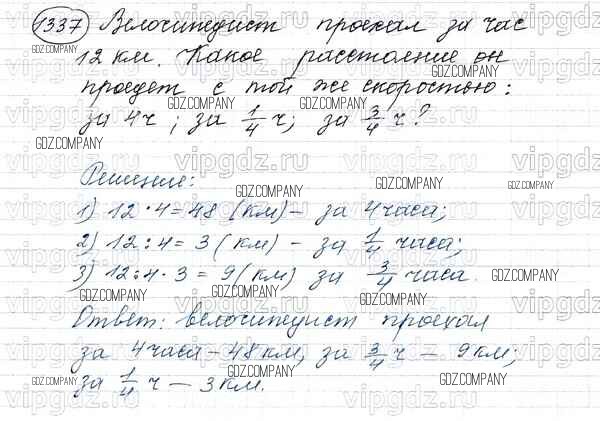 1337 Велосипедист проехал за час
12 км. Какое расстояние он
проедет с той же скоростью:
за 4ч; за 1/4 ч; за 3/4 ч?
Решение:
1) 12 · 4 = 48 (км) – за 4 часа;
2) 12 : 4 = 3 (км) – за 1/4 часа;
3) 12 : 4 · 3 = 9 (км) за 3/4 часа.
Ответ: велосипедист проехал
за 4 часа – 48 км, за 3/4 ч – 9 км;
за 1/4 ч – 3 км.
GDZ.COMPANY
vipgdz.ru